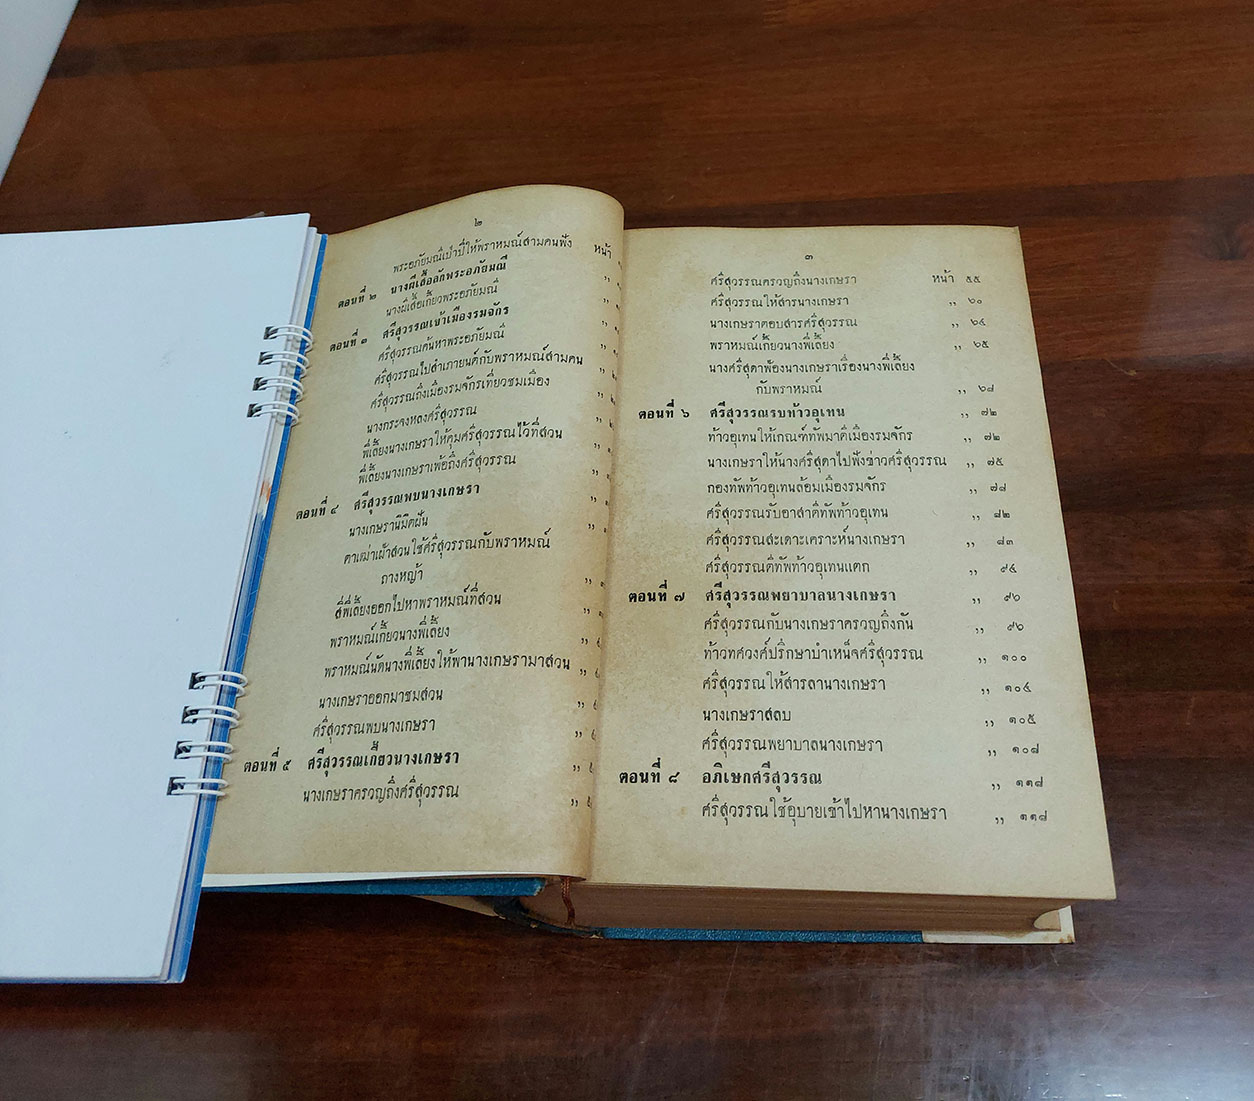 ๒
พระอภัยมณีเป่าปี่ให้พราหมณ์สามคนฟัง หน้า
ตอนที่ ๒ นางผีเสื้อลักพระอภัยมณี ,,
นางผีเสื้อเกี้ยวพระอภัยมณี ,,
ตอนที่ ๓ ศรีสุวรรณเข้าเมืองรมจักร ,,
ศรีสุวรรณค้นหาพระอภัยมณี ,,
ศรีสุวรรณไปสำเภายนต์กับพราหมณ์สามคน ,,
ศรีสุวรรณถึงเมืองรมจักรเที่ยวชมเมือง ,,
นางกระจงหลงศรีสุวรรณ ,,
พี่เลี้ยงนางเกษราให้คุมศรีสุวรรณไว้ที่สวน ,,
พี่เลี้ยงนางเกษราเพ้อถึงศรีสุวรรณ ,,
ตอนที่ ๔ ศรีสุวรรณพบนางเกษรา ,,
นางเกษรานิมิตฝัน ,,
ตาเฒ่าเฝ้าสวนใช้ศรีสุวรรณกับพราหมณ์
ถางหญ้า ,,
สี่พี่เลี้ยงออกไปหาพราหมณ์ที่สวน ,,
พราหมณ์เกี้ยวนางพี่เลี้ยง ,,
พราหมณ์นัดนางพี่เลี้ยงให้พานางเกษรามาสวน ,,
นางเกษราออกมาชมสวน ,,
ศรีสุวรรณพบนางเกษรา ,,
ตอนที่ ๕ ศรีสุวรรณเกี้ยวนางเกษรา ,,
นางเกษราครวญถึงศรีสุวรรณ ,,
๓
ศรีสุวรรณครวญถึงนางเกษรา หน้า ๕๕
ศรีสุวรรณให้สารนางเกษรา ,, ๖๐
นางเกษราตอบสารศรีสุวรรณ ,, ๖๔
พราหมณ์เกี้ยวนางพี่เลี้ยง ,, ๖๕
นางศรีสุดาฟ้องนางเกษราเรื่องนางพี่เลี้ยง
กับพราหมณ์ ,, ๖๘
ตอนที่ ๖ ศรีสุวรรณรบท้าวอุเทน ,, ๗๒
ท้าวอุเทนให้เกณฑ์ทัพมาตีเมืองรมจักร ,, ๗๒
นางเกษราให้นางศรีสุดาไปฟังข่าวศรีสุวรรณ ,, ๗๕
กองทัพท้าวอุเทนล้อมเมืองรมจักร ,, ๗๘
ศรีสุวรรณรับอาสาตีทัพท้าวอุเทน ,, ๘๒
ศรีสุวรรณสะเดาะเคราะห์นางเกษรา ,, ๘๓
ศรีสุวรรณตีทัพท้าวอุเทนแตก ,, ๙๔
ตอนที่ ๗ ศรีสุวรรณพยาบาลนางเกษรา ,, ๙๖
ศรีสุวรรณกับนางเกษราครวญถึงกัน ,, ๙๖
ท้าวทศวงศ์ปรึกษาบำเหน็จศรีสุวรรณ ,, ๑๐๐
ศรีสุวรรณให้สารลานางเกษรา ,, ๑๐๔
นางเกษราสลบ ,, ๑๐๕
ศรีสุวรรณพยาบาลนางเกษรา ,, ๑๐๗
ตอนที่ ๘ อภิเษกศรีสุวรรณ ,, ๑๑๘
ศรีสุวรรณใช้อุบายเข้าไปหานางเกษรา ,, ๑๑๘